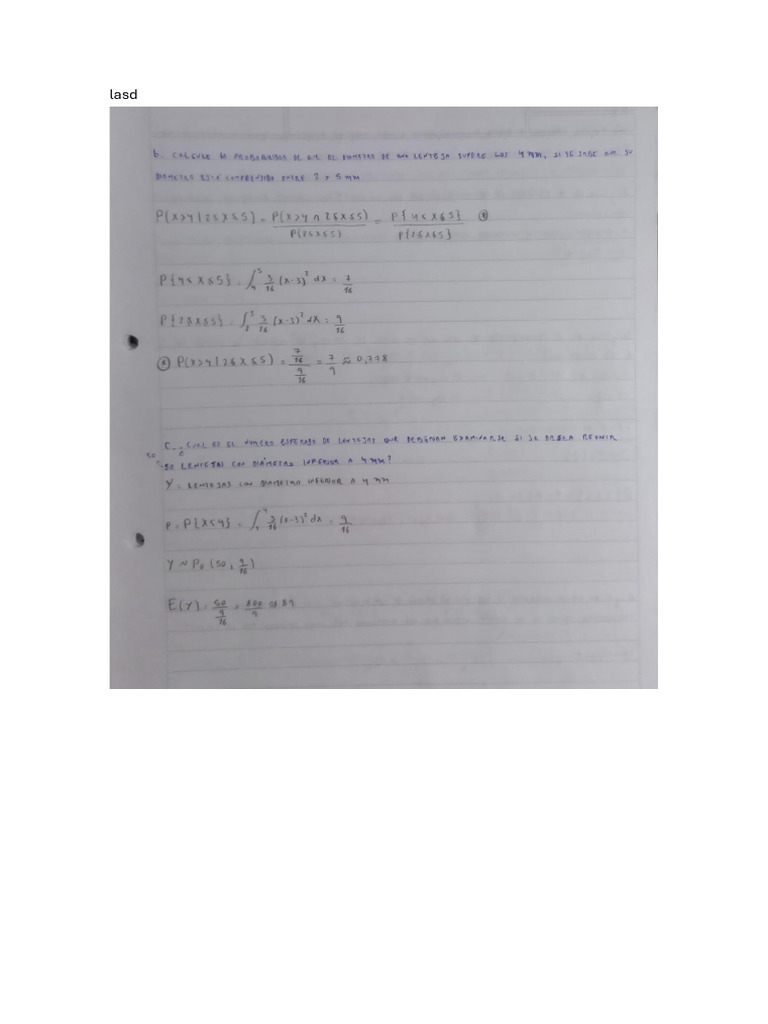 lasd
b. CALCULE LA PROBABILIDAD DE QUE EL DIAMETRO DE UNA LENTEJA SUPERE LOS 4 mm, SI SE SABE QUE SU
DIAMETRO ESTÁ COMPRENDIDO ENTRE 2 Y 5 mm
P(X>4 | 2≤X≤5) = P(X>4 ∩ 2≤X≤5) / P(2≤X≤5) = P{4≤X≤5} / P{2≤X≤5}
P{4≤X≤5} = ∫₄⁵ 3/16 (x-3)² dx = 7/16
P{2≤X≤5} = ∫₂⁵ 3/16 (x-3)² dx = 9/16
P(X>4 | 2≤X≤5) = 7/16 / 9/16 = 7/9 ≈ 0,778
C. ¿CUAL ES EL NÚMERO ESPERADO DE LENTEJAS QUE DEBERÍAN EXAMINARSE SI SE DESEA REUNIR
50
50 LENTEJAS CON DIÁMETRO INFERIOR A 4 mm?
Y = LENTEJAS CON DIAMETRO INFERIOR A 4 mm
P = P{X≤4} = ∫₁⁴ 3/16 (x-3)² dx = 9/16
Y ~ Pa (50, 9/16)
E(Y) = 50 / 9/16 = 800/9 ≅ 89